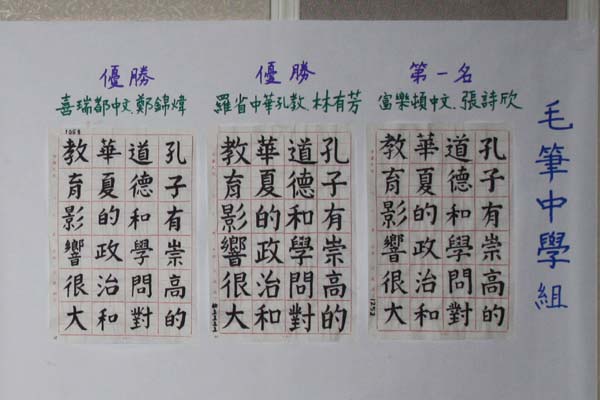 毛筆中學組
第一名
富樂頓中文.張詩欣
孔子有崇高的
道德和學問對
華夏的政治和
教育影響很大
優勝
羅省中華孔教.林有芳
孔子有崇高的
道德和學問對
華夏的政治和
教育影響很大
優勝
喜瑞都中文.鄭錦煒
孔子有崇高的
道德和學問對
華夏的政治和
教育影響很大